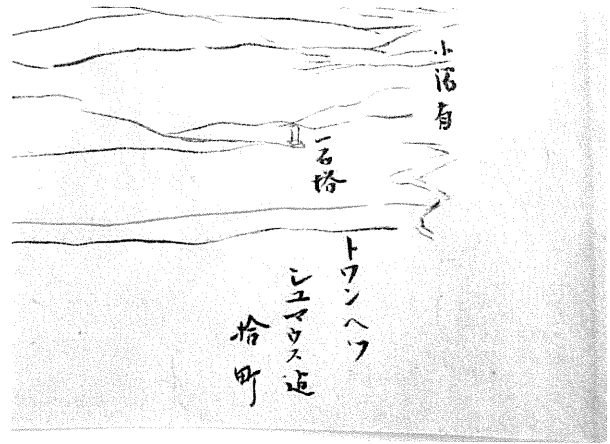 小沼有
一石塔
トワンヘツ
シユマウス迠
拾町